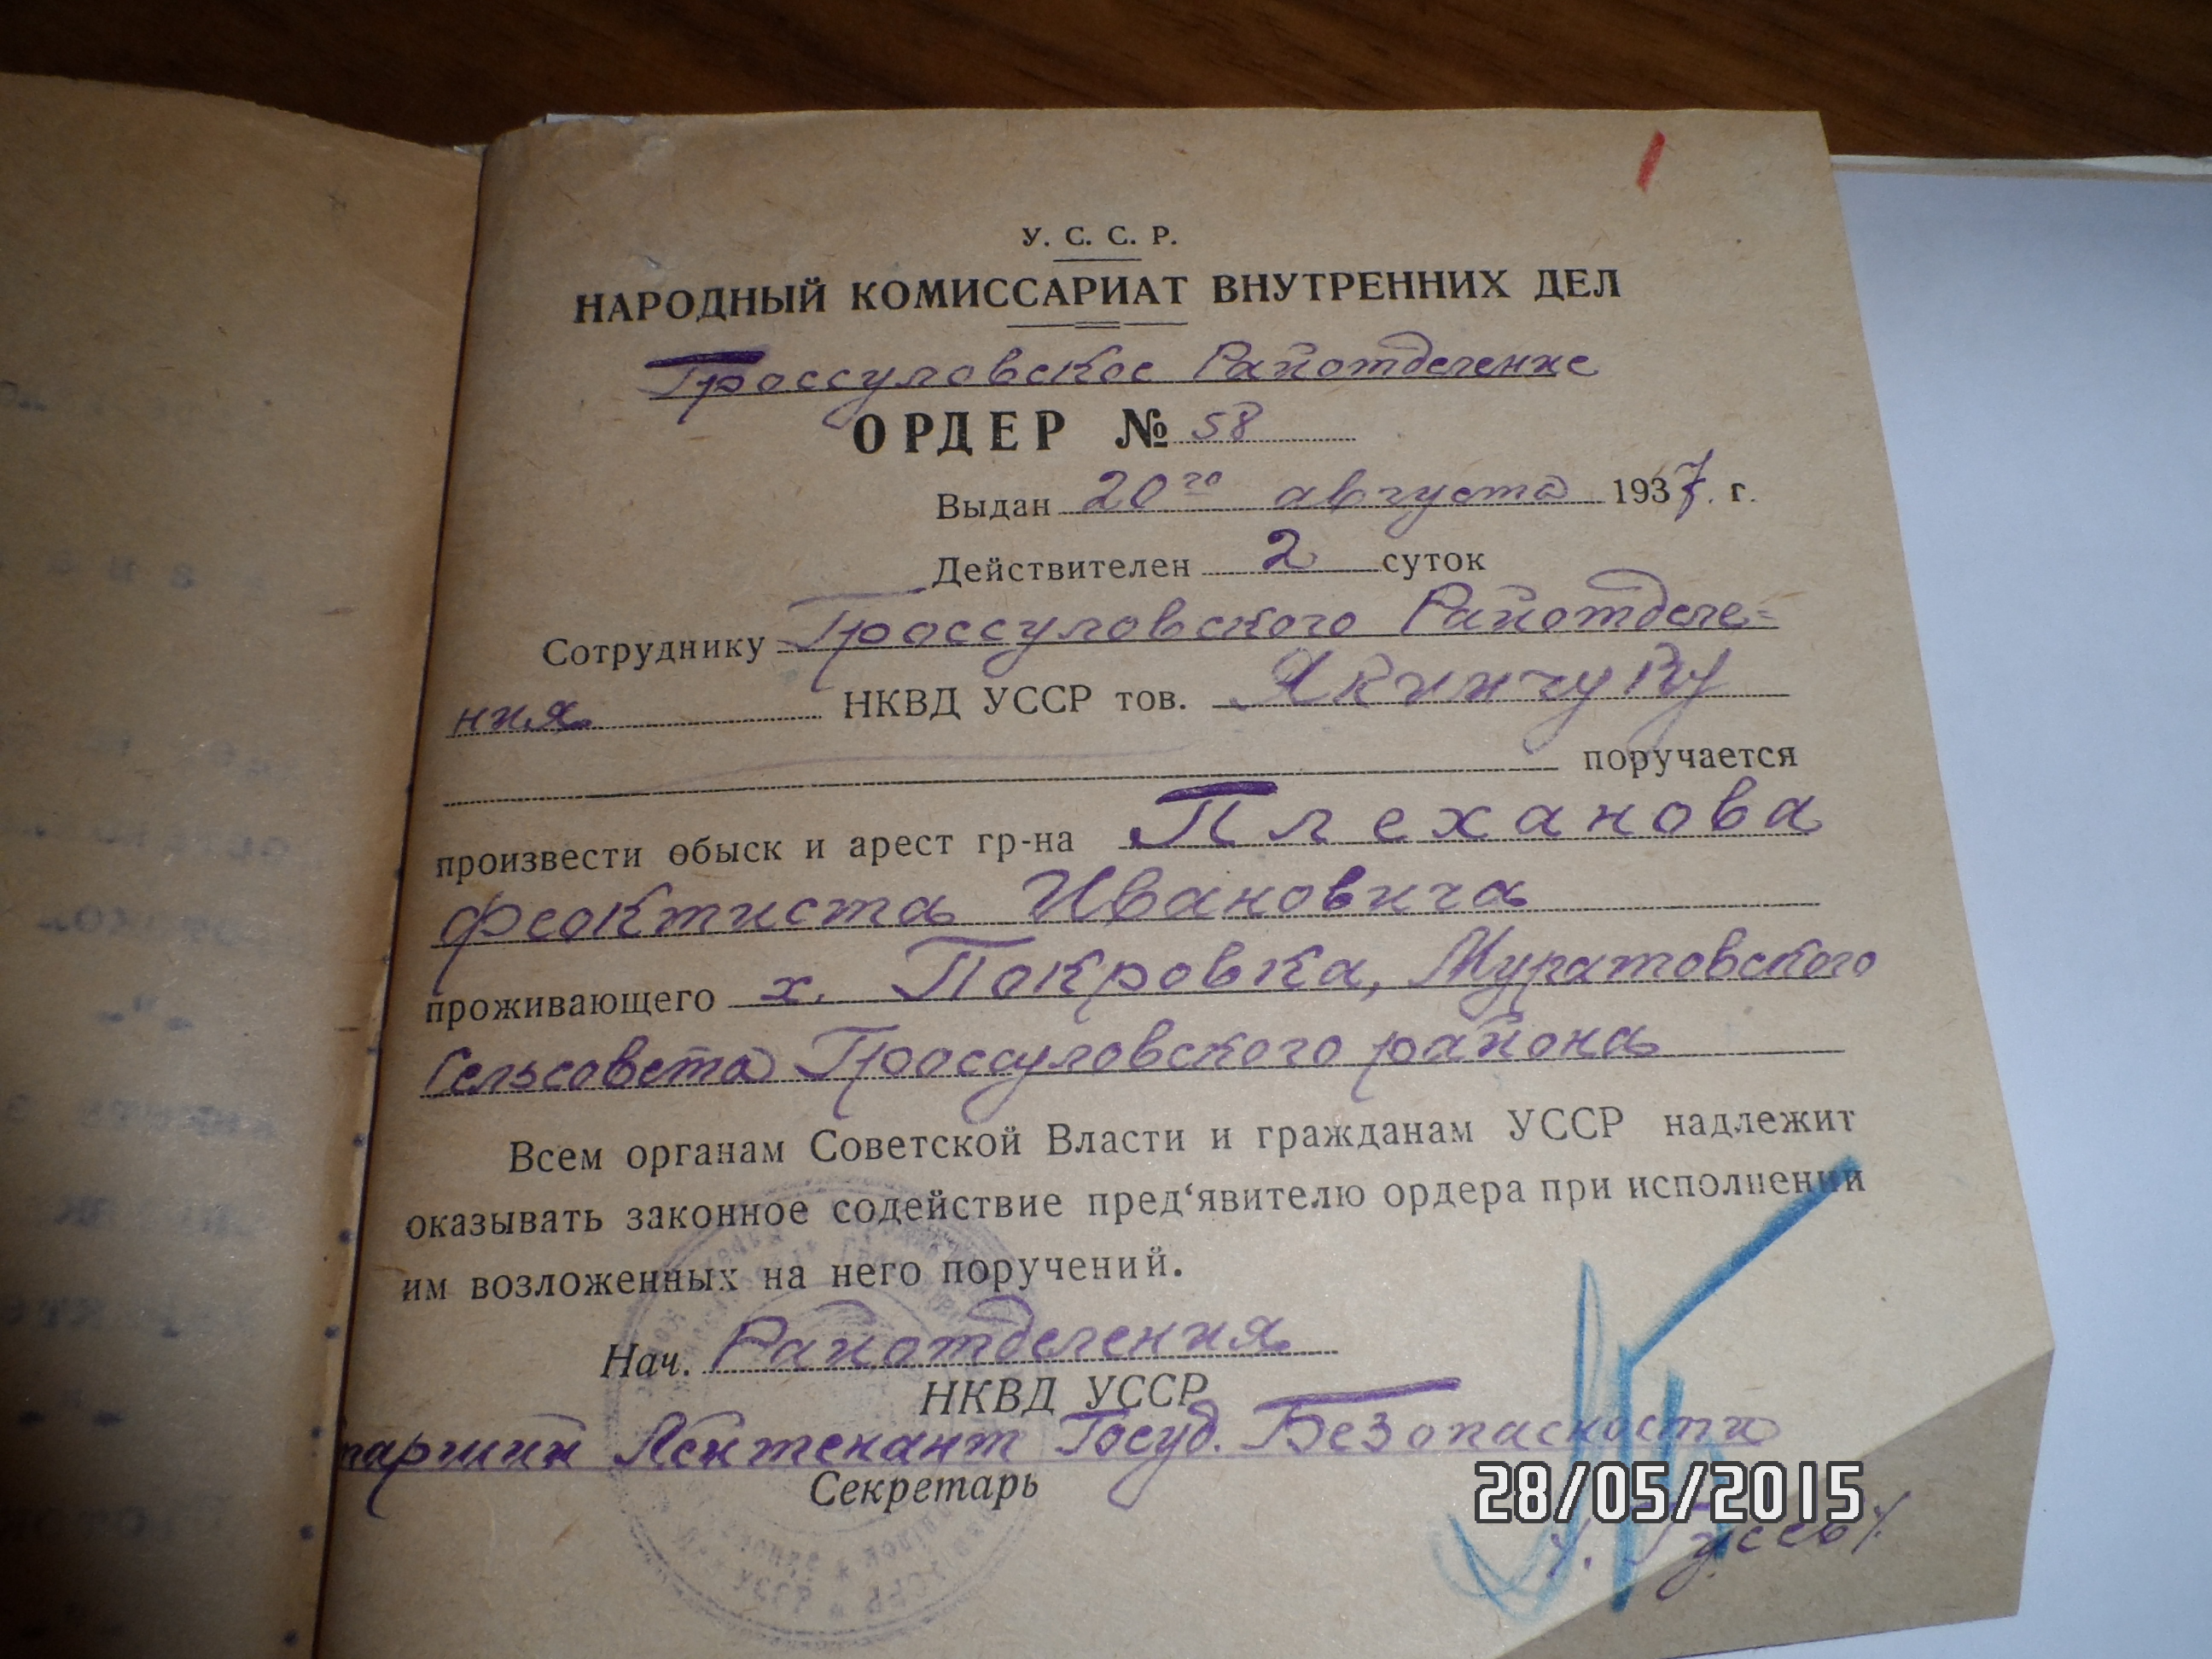 У. С. С. Р.
НАРОДНЫЙ КОМИССАРИАТ ВНУТРЕННИХ ДЕЛ
Гроссуловское Райотделение
ОРДЕР № 58
Выдан 20го августа 1937. г.
Действителен 2 суток
Сотруднику Гроссуловского Райотделе=
ния НКВД УССР тов. Якимчуку
поручается
произвести обыск и арест гр-на Плеханова
Феоктиста Ивановича
проживающего х. Покровка, Муратовского
Сельсовета Гроссуловского района
Всем органам Советской Власти и гражданам УССР надлежит
оказывать законное содействие пред‘явителю ордера при исполнении
им возложенных на него поручений.
Нач. Райотделения
НКВД УССР
тарший Лейтенант Госуд. Безопасности
Секретарь
28/05/2015
/. Гусев/.